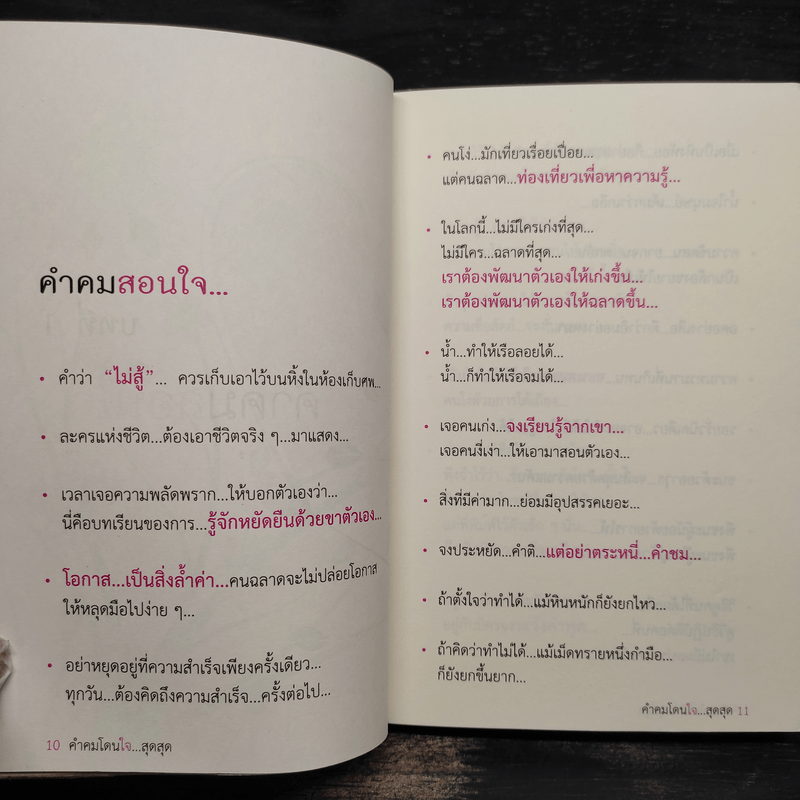 คำคมสอนใจ...
• คำว่า “ไม่สู้”... ควรเก็บเอาไว้บนหิ้งในห้องเก็บศพ...
• ละครแห่งชีวิต...ต้องเอาชีวิตจริง ๆ...มาแสดง...
• เวลาเจอความพลัดพราก...ให้บอกตัวเองว่า...
นี่คือบทเรียนของการ...รู้จักหยัดยืนด้วยขาตัวเอง...
• โอกาส...เป็นสิ่งล้ำค่า...คนฉลาดจะไม่ปล่อยโอกาส
ให้หลุดมือไปง่าย ๆ...
• อย่าหยุดอยู่ที่ความสำเร็จเพียงครั้งเดียว...
ทุกวัน...ต้องคิดถึงความสำเร็จ...ครั้งต่อไป...
10 คำคมโดนใจ...สุดสุด
• คนโง่...มักเที่ยวเรื่อยเปื่อย...
แต่คนฉลาด...ท่องเที่ยวเพื่อหาความรู้...
• ในโลกนี้...ไม่มีใครเก่งที่สุด...
ไม่มีใคร...ฉลาดที่สุด...
เราต้องพัฒนาตัวเองให้เก่งขึ้น...
เราต้องพัฒนาตัวเองให้ฉลาดขึ้น...
• น้ำ...ทำให้เรือลอยได้...
น้ำ...ก็ทำให้เรือจมได้...
• เจอคนเก่ง...จงเรียนรู้จากเขา...
เจอคนงี่เง่า...ให้เอามาสอนตัวเอง...
• สิ่งที่มีค่ามาก...ย่อมมีอุปสรรคเยอะ...
• จงประหยัด...คำติ...แต่อย่าตระหนี่...คำชม...
• ถ้าตั้งใจว่าทำได้...แม้หินหนักก็ยังยกไหว...
• ถ้าคิดว่าทำไม่ได้...แม้เม็ดทรายหนึ่งกำมือ...
ก็ยังยกขึ้นยาก...
คำคมโดนใจ...สุดสุด 11